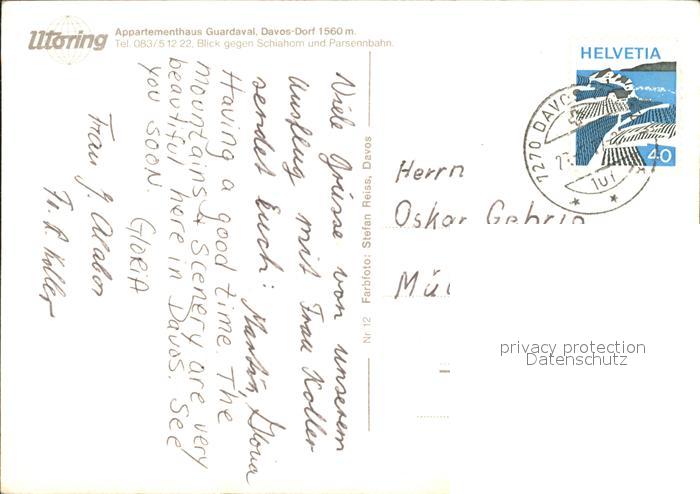 Utoring
Appartementhaus Guardaval, Davos-Dorf 1560 m.
Tel. 083/5 12 22, Blick gegen Schiahorn und Parsennbahn.
Viele Grüsse von unserem
Ausflug mit Frau Koller
sendet Euch: Martin, Gloria
Having a good time. The
mountains & scenery are very
beautiful here in Davos. See
you soon.
GLORIA
Frau J.
Fr. R. Koller
Nr 12 Farbfoto: Stefan Reiss, Davos
HELVETIA
40
7270 DAVOS
Herrn
Oskar Gehrig
privacy protection
Datenschutz